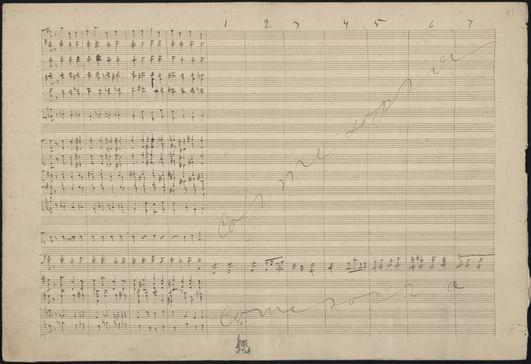 1 2 3 4 5 6 7
Come sopra
Come sopra